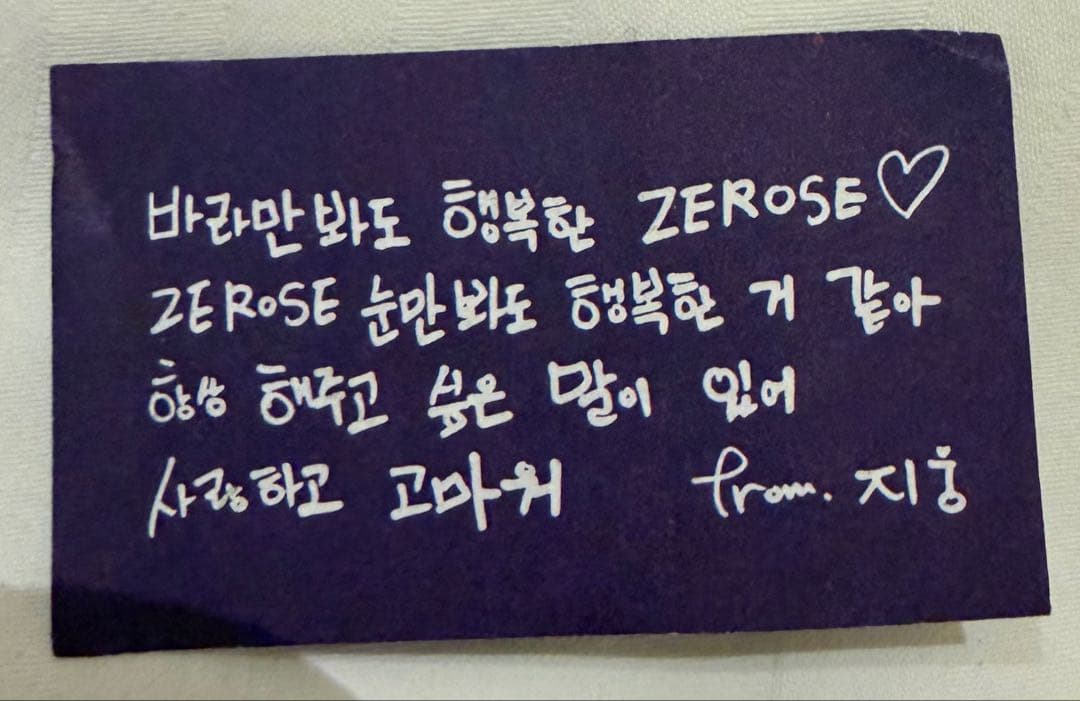 바라만봐도 행복한 ZEROSE♡
ZEROSE 눈만봐도 행복한 거 같아
항상 해주고 싶은 말이 있어
사랑하고 고마워 from. 지웅